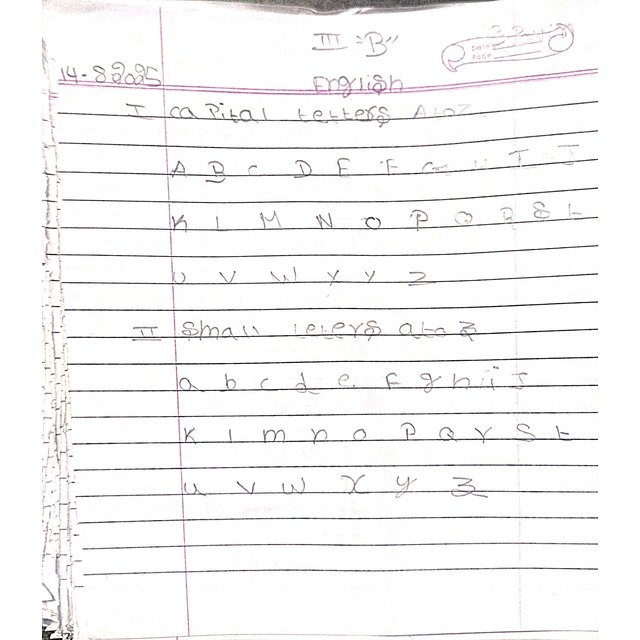 III "B"
Date
Page
14-8-2025
English
I capital letters A to Z
A B C D E F G H I J
K L M N O P Q R S t
U V W X Y Z
II Small leters a to z
a b c d e F g h i J
K l m n o P Q r S t
u v w x y z